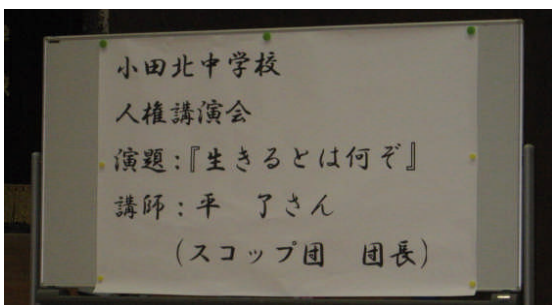 小田北中学校
人権講演会
演題:『生きるとは何ぞ』
講師:平 了さん
(スコップ団 団長)